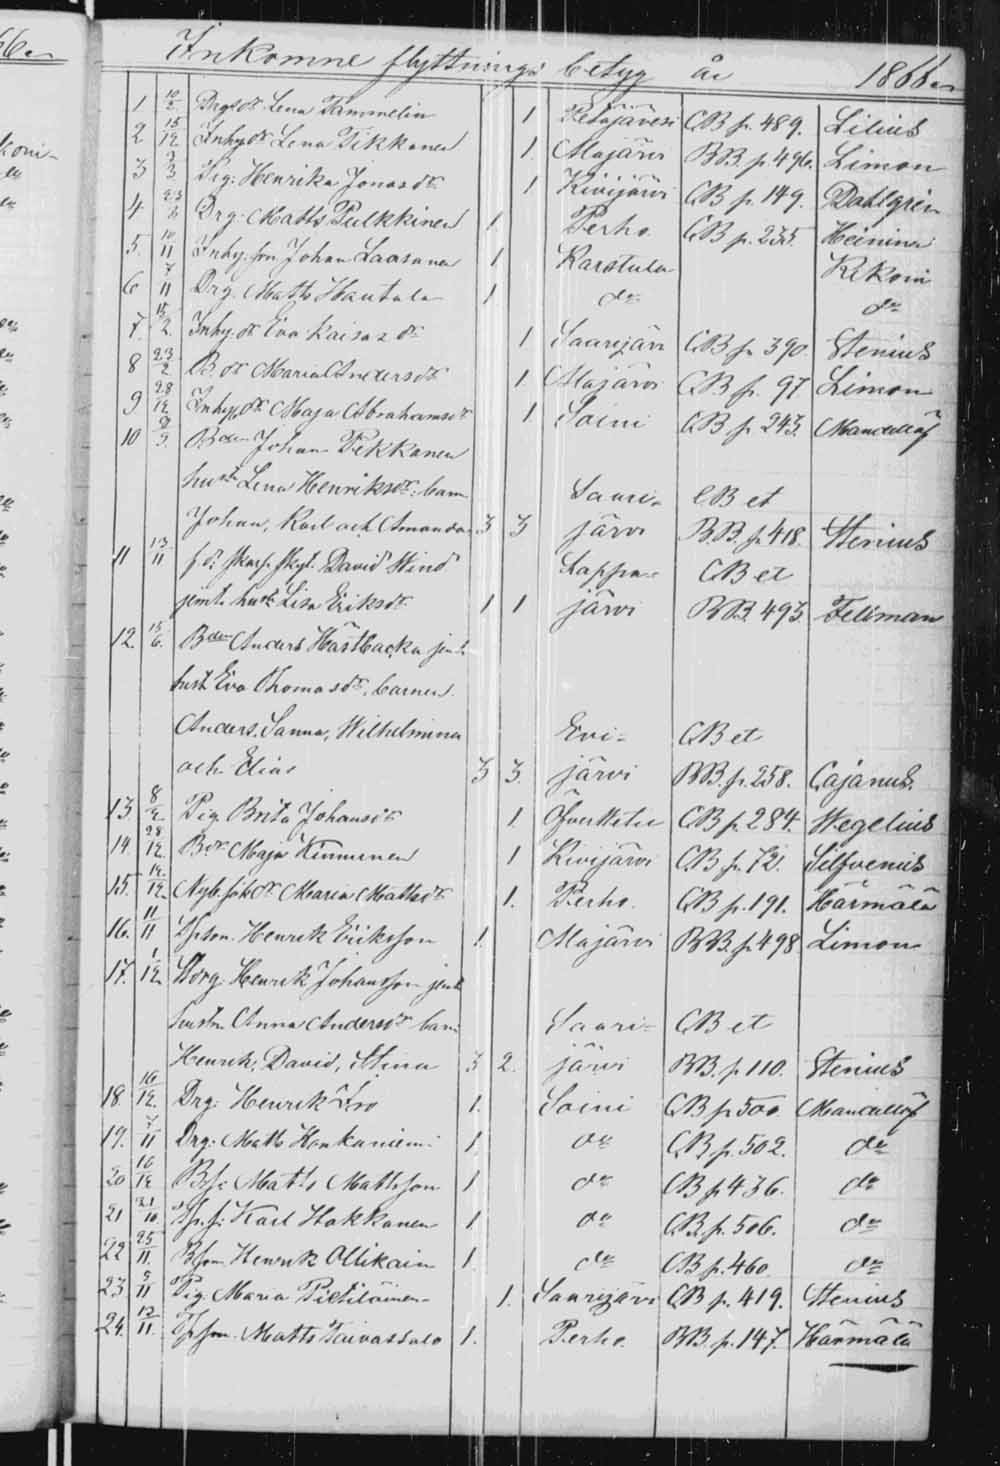 Inkomne flyttnings betyg år 1866
1 10/2 Drgs dr Lena Tammelin 1 Petäjävesi CB p. 489. Lilius
2 15/12 Inhys dr Lena Tikkanen 1. Alajärvi BB. p 496. Limon
3 3/3 Pig: Henrika Jonasdr 1 Kivijärvi CB p. 149. Dahlgren
4 23/6 Drg: Matts Pulkkinen 1. Perho CB p. 235. Heinina
5. 10/11 Inhy. son Johan Laasanen 1 Karstula Kekoni
6 7/11 Drg. Matts Hautala 1 do do
7. 15/2. Inhy: dr Eva Kaisasdr 1 Saarijärvi CB p. 390. Stenius
8 23/2 B. dr Maria Andersdr 1. Alajärvi CB p. 97 Limon
9 28/12 Inhys dr Maja Abrahamsdr 1 Soini CB p. 243. Mandellöf
10 Bden Johan Pekkanen
hustr Lena Henriksdr: barn Saari- CB et
Johan, Karl och Amanda 3 3 järvi BB. p. 418. Stenius
11 13/11 f. d. skarp skyt. David Wind Lappa- CB et
jemte hust. Lisa Eriksdr 1 1 järvi BB 493. Fellman
12. 15/6. Bden Anders Hästbacka jemte
hust Eva Thomasdr, barnen
Anders, Sanna, Wilhelmina Evi- CB et
och Elias 3 3. järvi BB. p. 258. Cajanus.
13. 8/2 Pig Brita Johansdr 1. Öfvertteu CB p. 284. Wegelius
14. 28/12. B dr Maja Kinnunen 1 Kivijärvi CB p. 72. Silfvenius
15. 14/12 Nyb. dr Maria Mattsdr 1. Perho. CB p. 191. Härmälä
16. 11/11 Tpson. Henrik Eriksson 1. Alajärvi BB. p 498 Limon
17. 1/12 Storg. Henrik Johansson jemte
hustrn Anna Andersdr barn Saari- CB et
Henrik, David, Stina 3 2. järvi BB. p. 110. Stenius
18. 16/12. Drg: Henrik Iso 1. Soini CB p 500 Mandellöf
19. 7/11 Drg: Matts Honkaniemi 1 do CB p. 502. do
20 16/12 Bs: Matts Mattsson 1 do CB p 436. do
21 21/10. Tp. s: Karl Hakkanen 1 do CB. p. 506. do
22 25/11. Bson Henrik Ollikain 1. do CB p. 460 do
23 9/11 Pig. Maria Pietiläinen 1. Saarijärvi CB p. 419. Stenius
24. 12/11. Tpson. Matts Taivassalo 1. Perho. BB. p. 147. Härmälä